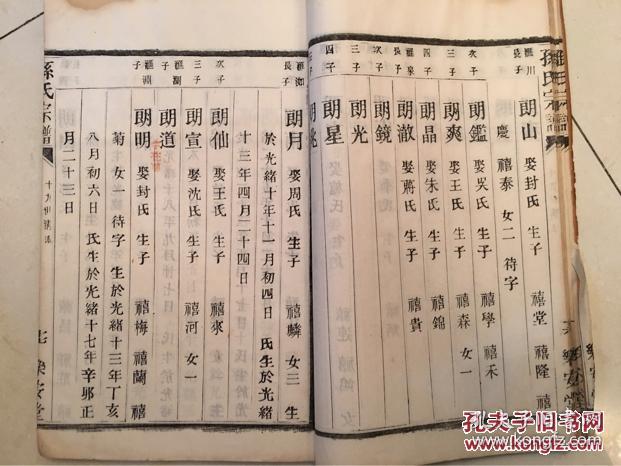 孫氏宗譜
滙川長子
朗山 娶封氏 生子 禧堂 禧隆 禧
慶 禧泰 女二 待字
次子
朗鑑 娶吳氏 生子 禧學 禧禾
三子
朗爽 娶王氏 生子 禧森 女一
四子
朗晶 娶朱氏 生子 禧錦
滙泉長子
朗澈 娶蔣氏 生子 禧貴
次子
朗鏡
三子
朗光
四子
朗星
樂安堂
孫氏宗譜
滙 長子
朗月 娶周氏 生子 禧麟 女三 生
於光緒十年十一月初四日 氏生於光緒
十三年四月二十四日
次子
朗仙 娶王氏 生子 禧來
三子
朗宣 娶沈氏 生子 禧河 女一
滙 子
朗道
滙 子
朗明 娶封氏 生子 禧梅 禧蘭 禧
菊 女一 待字 生於光緒十三年丁亥
八月初六日 氏生於光緒十七年辛卯正
月二十三日
七 樂安堂
孔夫子旧书网
www.kongfz.com